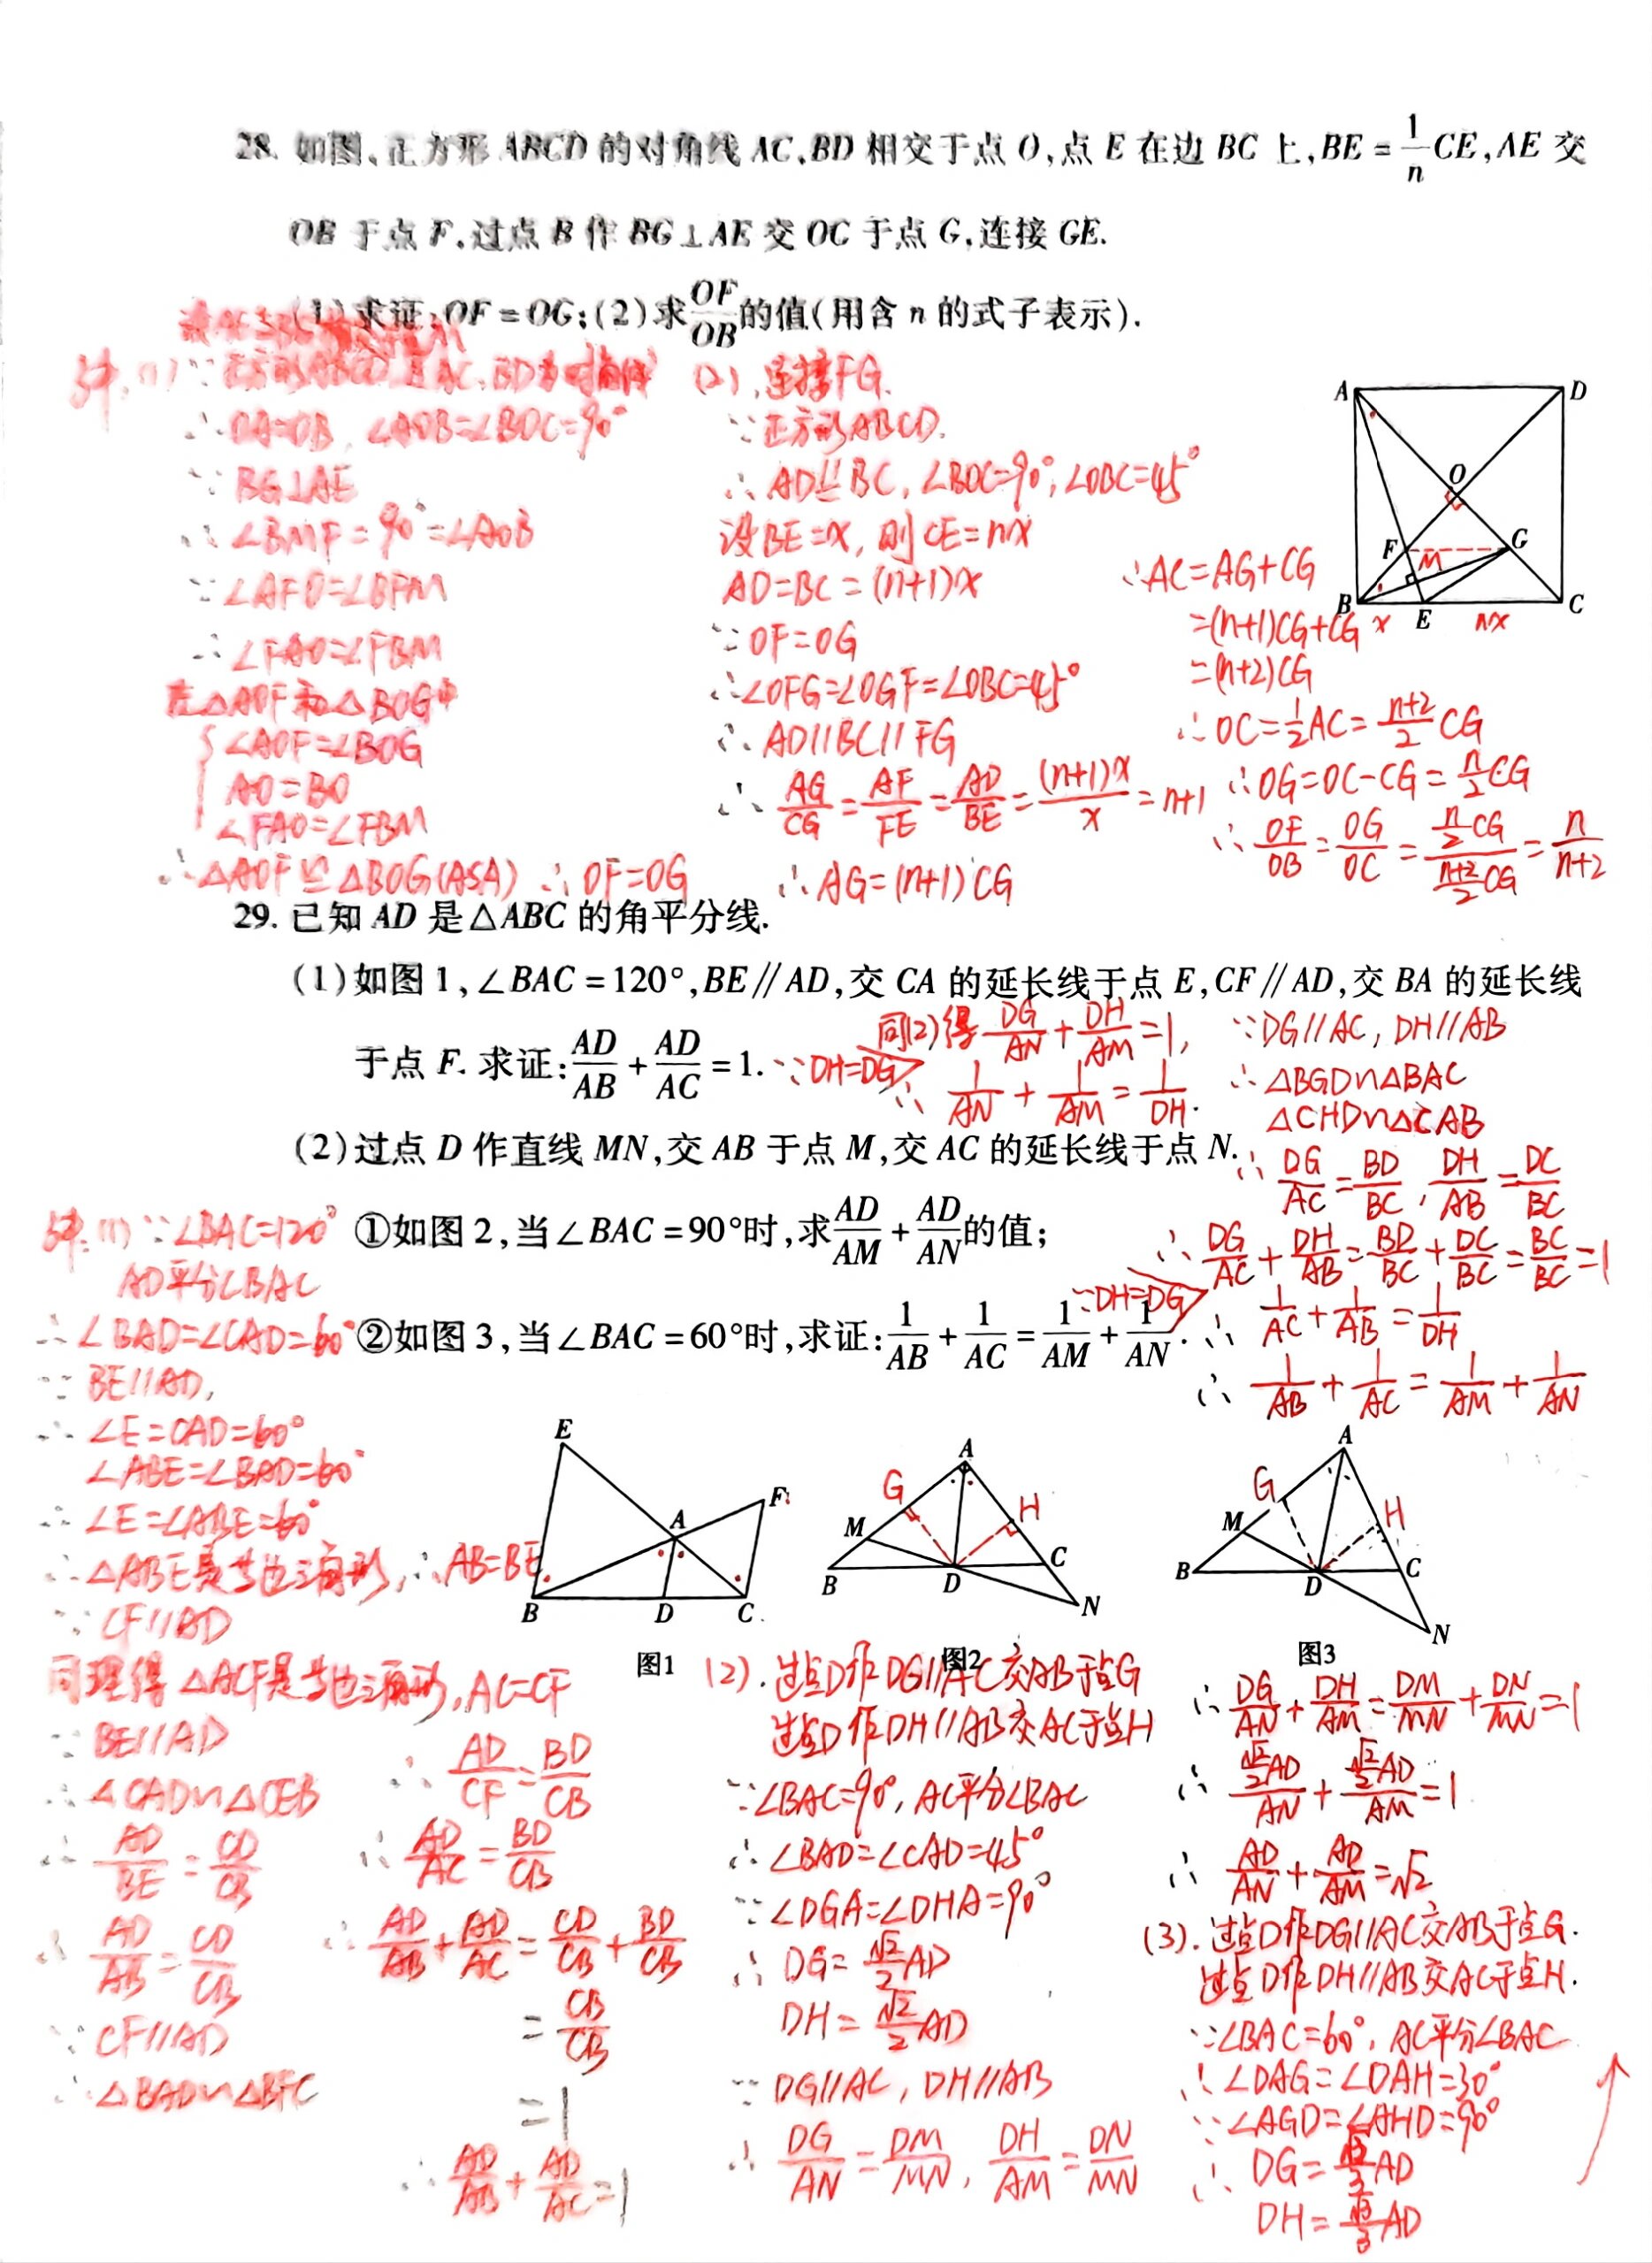 28. 如图,正方形 ABCD 的对角线 AC,BD 相交于点 O,点 E 在边 BC 上,BE = 1/n CE,AE 交
OB 于点 F,过点 B 作 BG⊥AE 交 OC 于点 G,连接 GE.
(1)求证:OF = OG;(2)求 OF/OB 的值(用含 n 的式子表示).
(1) ∵ 正方形ABCD AC、BD为对角线
∴ OA=OB, ∠AOB=∠BOC=90°
∵ BG⊥AE
∴ ∠BMF=90°=∠AOB
∵ ∠AFO=∠BFM
∴ ∠FAO=∠FBM
在△AOF和△BOG中
{ ∠AOF=∠BOG
AO=BO
∠FAO=∠FBM
∴ △AOF≌△BOG(ASA) ∴ OF=OG
(2). 连接FG.
∵ 正方形ABCD.
∴ AD∥BC, ∠BOC=90°, ∠OBC=45°
设BE=x, 则CE=nx
AD=BC=(n+1)x
∵ OF=OG
∴ ∠OFG=∠OGF=∠OBC=45°
∴ AD//BC//FG
∴ AG/CG = AF/FE = AD/BE = (n+1)x/x = n+1
∴ AG=(n+1)CG
∴ AC=AG+CG
=(n+1)CG+CG
=(n+2)CG
∴ OC=1/2 AC= n+2/2 CG
∴ OG=OC-CG= n/2 CG
∴ OF/OB = OG/OC = n/2 CG / n+2/2 CG = n/n+2
A D
O
F G
M
B x E nx C
29. 已知 AD 是△ABC 的角平分线.
(1)如图 1,∠BAC = 120°,BE∥AD,交 CA 的延长线于点 E,CF∥AD,交 BA 的延长线
于点 F. 求证: AD/AB + AD/AC = 1.
(2)过点 D 作直线 MN,交 AB 于点 M,交 AC 的延长线于点 N.
①如图 2,当∠BAC = 90°时,求 AD/AM + AD/AN 的值;
②如图 3,当∠BAC = 60°时,求证: 1/AB + 1/AC = 1/AM + 1/AN.
同(2)得 DG/AN + DH/AM = 1,
∵ DH=DG
∴ 1/AN + 1/AM = 1/DH.
∵ DG//AC, DH//AB
∴ △BGD∽△BAC
△CHD∽△CAB
∴ DG/AC = BD/BC, DH/AB = DC/BC
∴ DG/AC + DH/AB = BD/BC + DC/BC = BC/BC = 1
∵ DH=DG
∴ 1/AC + 1/AB = 1/DH
∴ 1/AB + 1/AC = 1/AM + 1/AN
(1) ∵ ∠BAC=120°
AD平分∠BAC
∴ ∠BAD=∠CAD=60°
∵ BE//AD,
∴ ∠E=CAD=60°
∠ABE=∠BAD=60°
∴ ∠E=∠ABE=60°
∴ △ABE是等边三角形, ∴ AB=BE
∵ CF//AD
同理得 △ACF是等边三角形, AC=CF
∵ BE//AD
∴ △CAD∽△CEB
∴ AD/BE = CD/CB
∴ AD/AB = CD/CB
∵ CF//AD
∴ △BAD∽△BFC
∴ AD/CF = BD/CB
∴ AD/AC = BD/CB
∴ AD/AB + AD/AC = CD/CB + BD/CB
= CB/CB
=1
∴ AD/AB + AD/AC = 1
E
F
A
B D C
图1
A
G H
M
B D C
N
图2
A
G
M H
B D C
N
图3
(2). 过点D作DG//AC交AB于点G
过点D作DH//AB交AC于点H
∵ ∠BAC=90°, AC平分∠BAC
∴ ∠BAD=∠CAD=45°
∵ ∠DGA=∠DHA=90°
∴ DG= √2/2 AD
DH= √2/2 AD
∵ DG//AC, DH//AB
∴ DG/AN = DM/MN, DH/AM = DN/MN
∴ DG/AN + DH/AM = DM/MN + DN/MN = 1
∴ √2/2 AD/AN + √2/2 AD/AM = 1
∴ AD/AN + AD/AM = √2
(3). 过点D作DG//AC交AB于点G.
过点D作DH//AB交AC于点H.
∵ ∠BAC=60°, AC平分∠BAC
∴ ∠DAG=∠DAH=30°
∵ ∠AGD=∠AHD=90°
∴ DG= √3/3 AD
DH= √3/3 AD